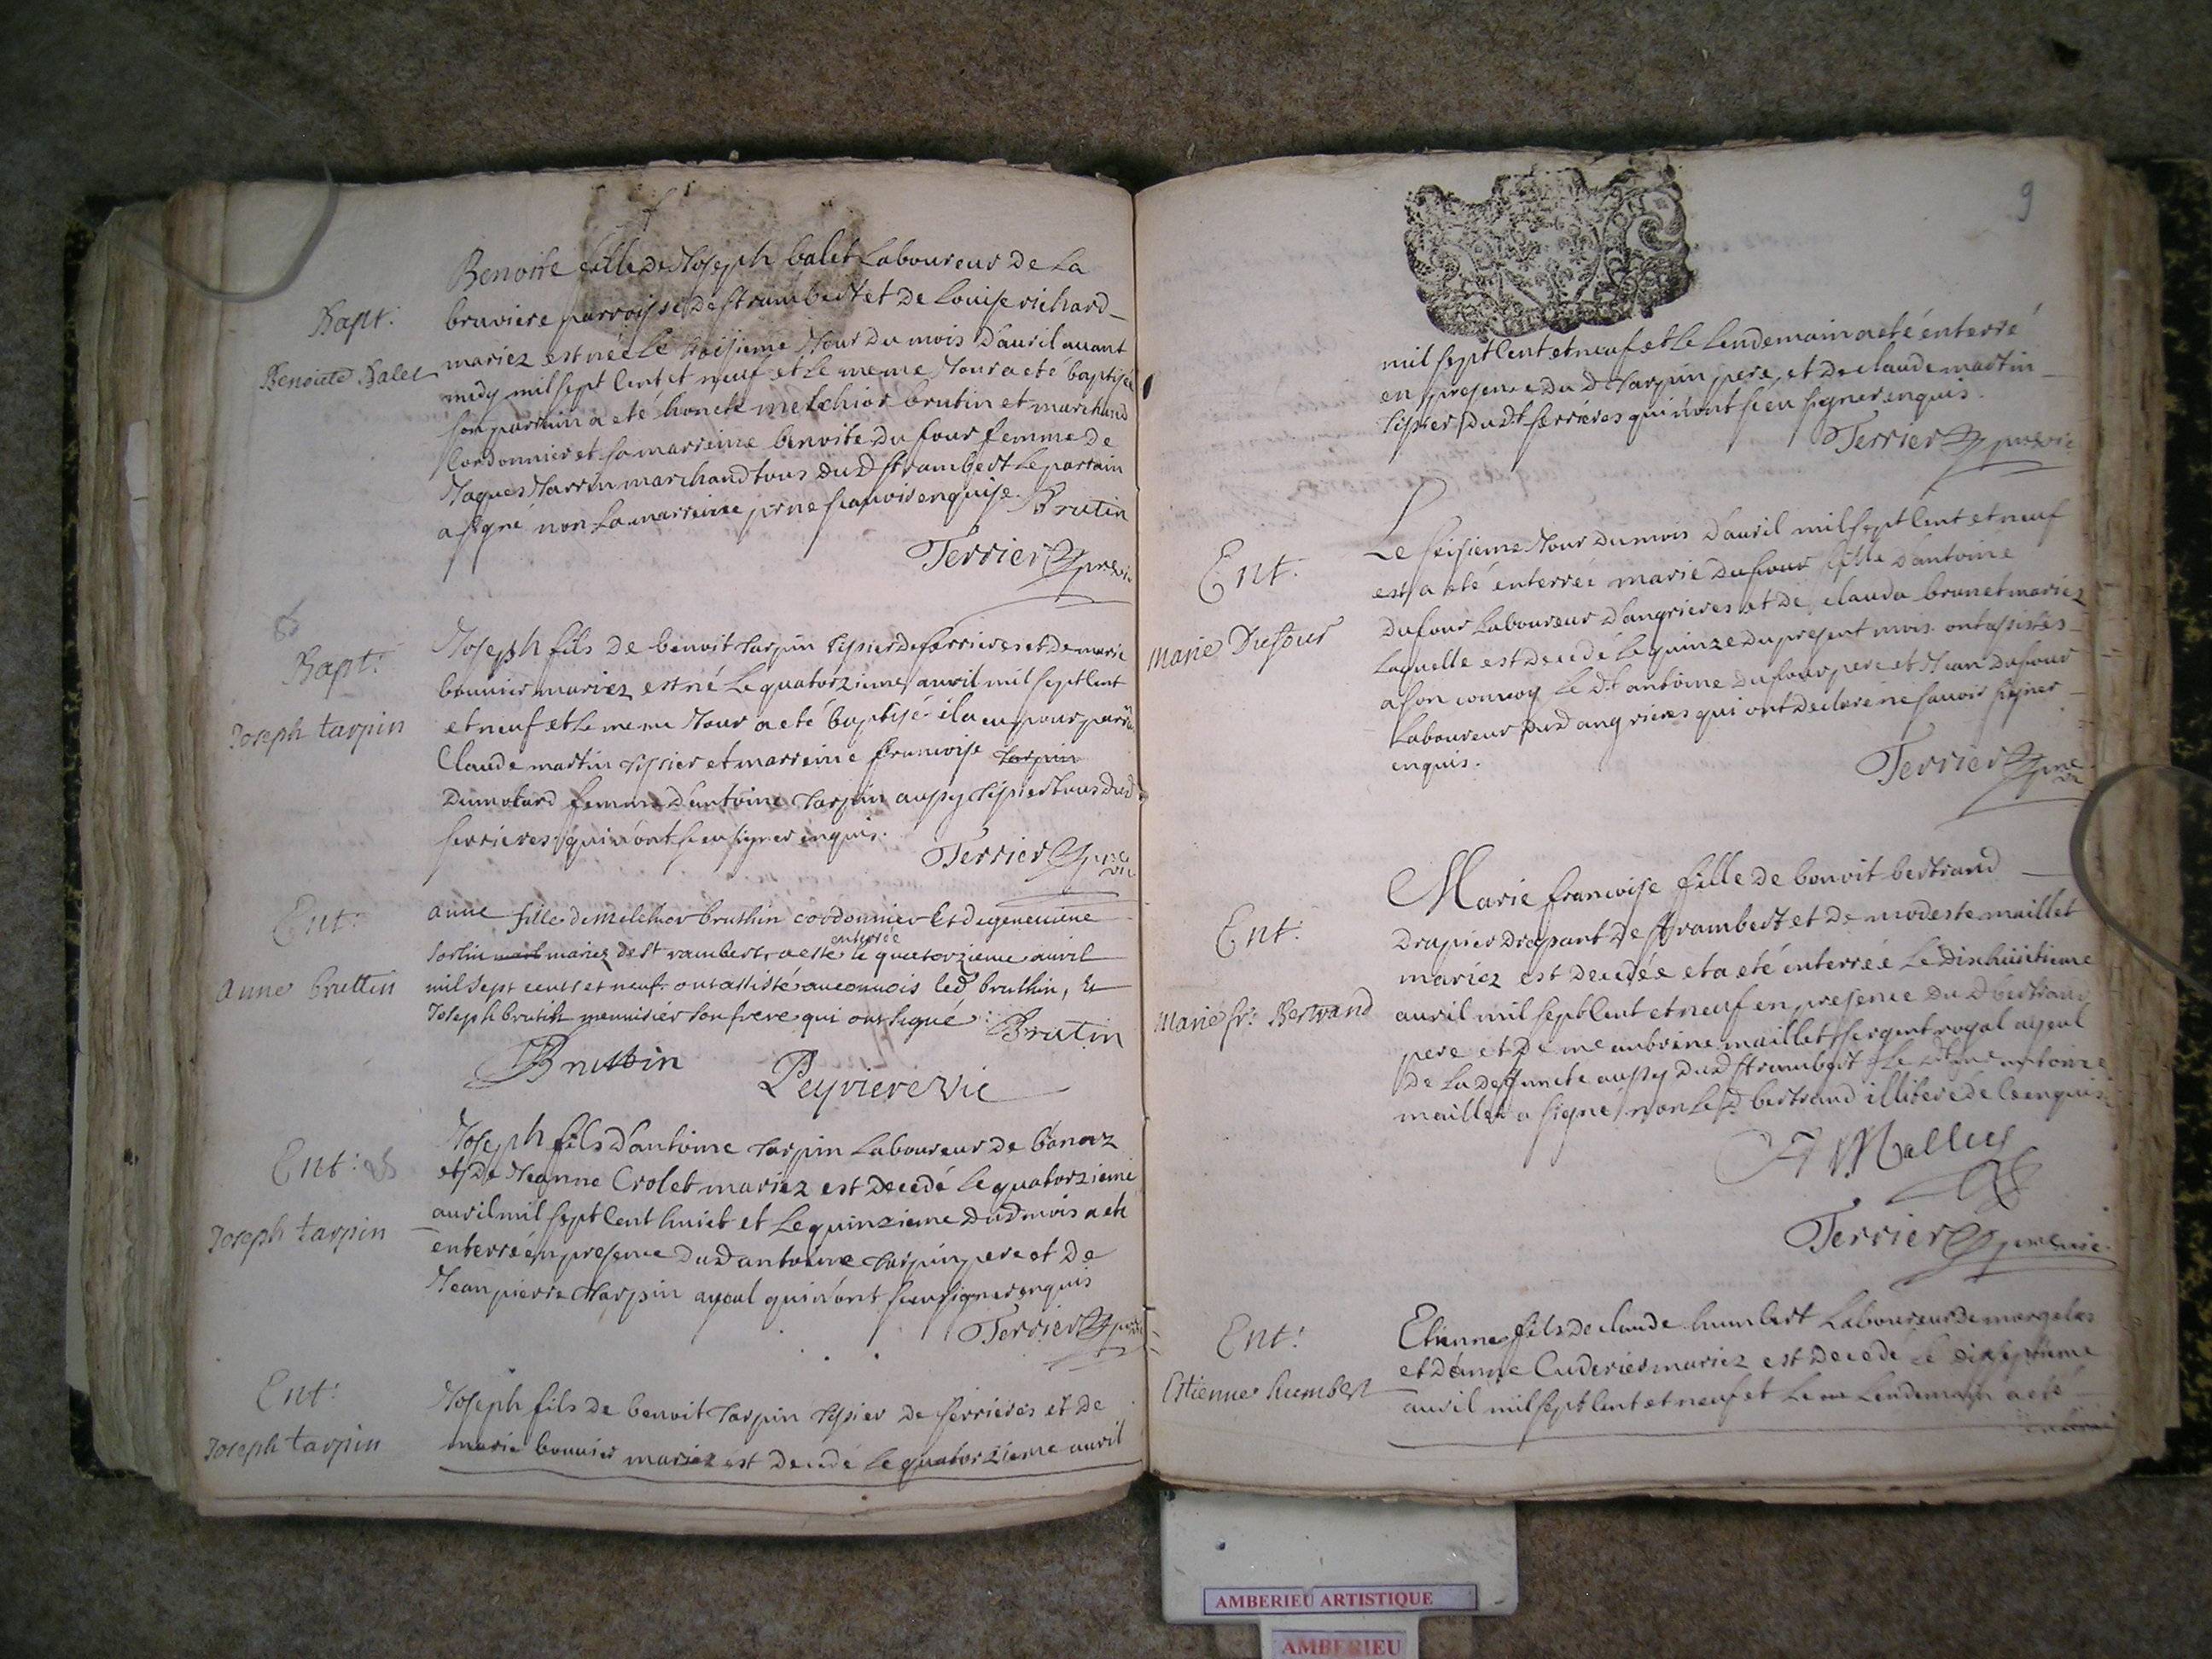 Bapt:
Benoite Balet
Benoite fille de Joseph balet Laboureur de La
bruviere parroisse de st rambert et de Louise richard
mariez est née le troisieme Jour du mois d'auril auant
midy mil sept Cent et neuf et le meme Jour a eté baptisée
son parrain a eté honete melchior brutin et marchand
Cordonnier et sa marreine benoite du four femme de
Jaques Jarrin marchand tous dud st rambert le parrain
a signé non La marreine pr ne scauoir enquise. Brutin
Terrier
Bapt:
Joseph tarpin
Joseph fils de benoit tarpin tissier de ferrieres et de marie
bouuier mariez est né le quatorzieme auril mil sept Cent
et neuf et le meme Jour a eté baptisé il a eu pour parrain
Claude martin tissier et marreine francoise tarpin
Dumolard femme d'antoine tarpin aussy tissier tous dud
ferrieres qui n'ont sceu signer enquis.
Terrier
Ent:
Anne bruttin
anne fille de melchior bruthin cordonnier Et de geneuieue
enterrée
sorlin mariez de st rambert a esté le quatorzieme auril
mil sept cents et neuf ont assisté au conuois led bruthin, Et
Joseph brutin menuisier son frere qui ont signé: Brutin
Bruttin Peyriere vic
Ent:
Joseph tarpin
Joseph fils d'antoine tarpin Laboureur de bonaz
et de Jeanne Crolet mariez est decedé le quatorzieme
auril mil sept Cent huict et le quinzieme dud mois a eté
enterré en presence dud antoine tarpin pere et de
Jean pierre tarpin ayeul qui n'ont sceu signer enquis
Terrier
Ent:
Joseph tarpin
Joseph fils de benoit tarpin tissier de ferrieres et de
marie bouuier mariez est decedé le quatorzieme auril
9
mil sept Cent et neuf et le Lendemain a eté enterré
en presence du d tarpin pere et de claude martin
tissier du dt ferrieres qui n'ont sceu signer enquis.
Terrier
Ent.
Marie Dufour
Le seisieme Jour du mois d'auril mil sept Cent et neuf
est a eté enterrée marie dufour fille d'antoine
dufour Laboureur d'angrieres et de clauda brunet mariez
Laquelle est decedé le quinze du present mois. ont assistés
a son conuoy le dt antoine dufour pere et Jean dufour
Laboureur dud angrieres qui ont declaré ne sauoir signer
enquis.
Terrier
Ent.
Marie fr: Bertrand
Marie francoise fille de benoit bertrand
drapier drapant de st rambert et de modeste maillet
mariez est decedée et a eté enterrée le dixhuitieme
auril mil sept Cent et neuf en presence du d bertrand
pere et de me maillet sergent royal ayeul
de La deffuncte aussy dud st rambert le dt me antoine
maillet a signé non le d bertrand illiteré de ce enquis
Terrier
Ent:
Etienne humbert
Etienne fils de claude humbert Laboureur de morgelas
et d'anne Cuderier mariez est decedé le dixseptieme
auril mil sept Cent et neuf et le Lendemain a eté
AMBERIEU ARTISTIQUE
AMBERIEU